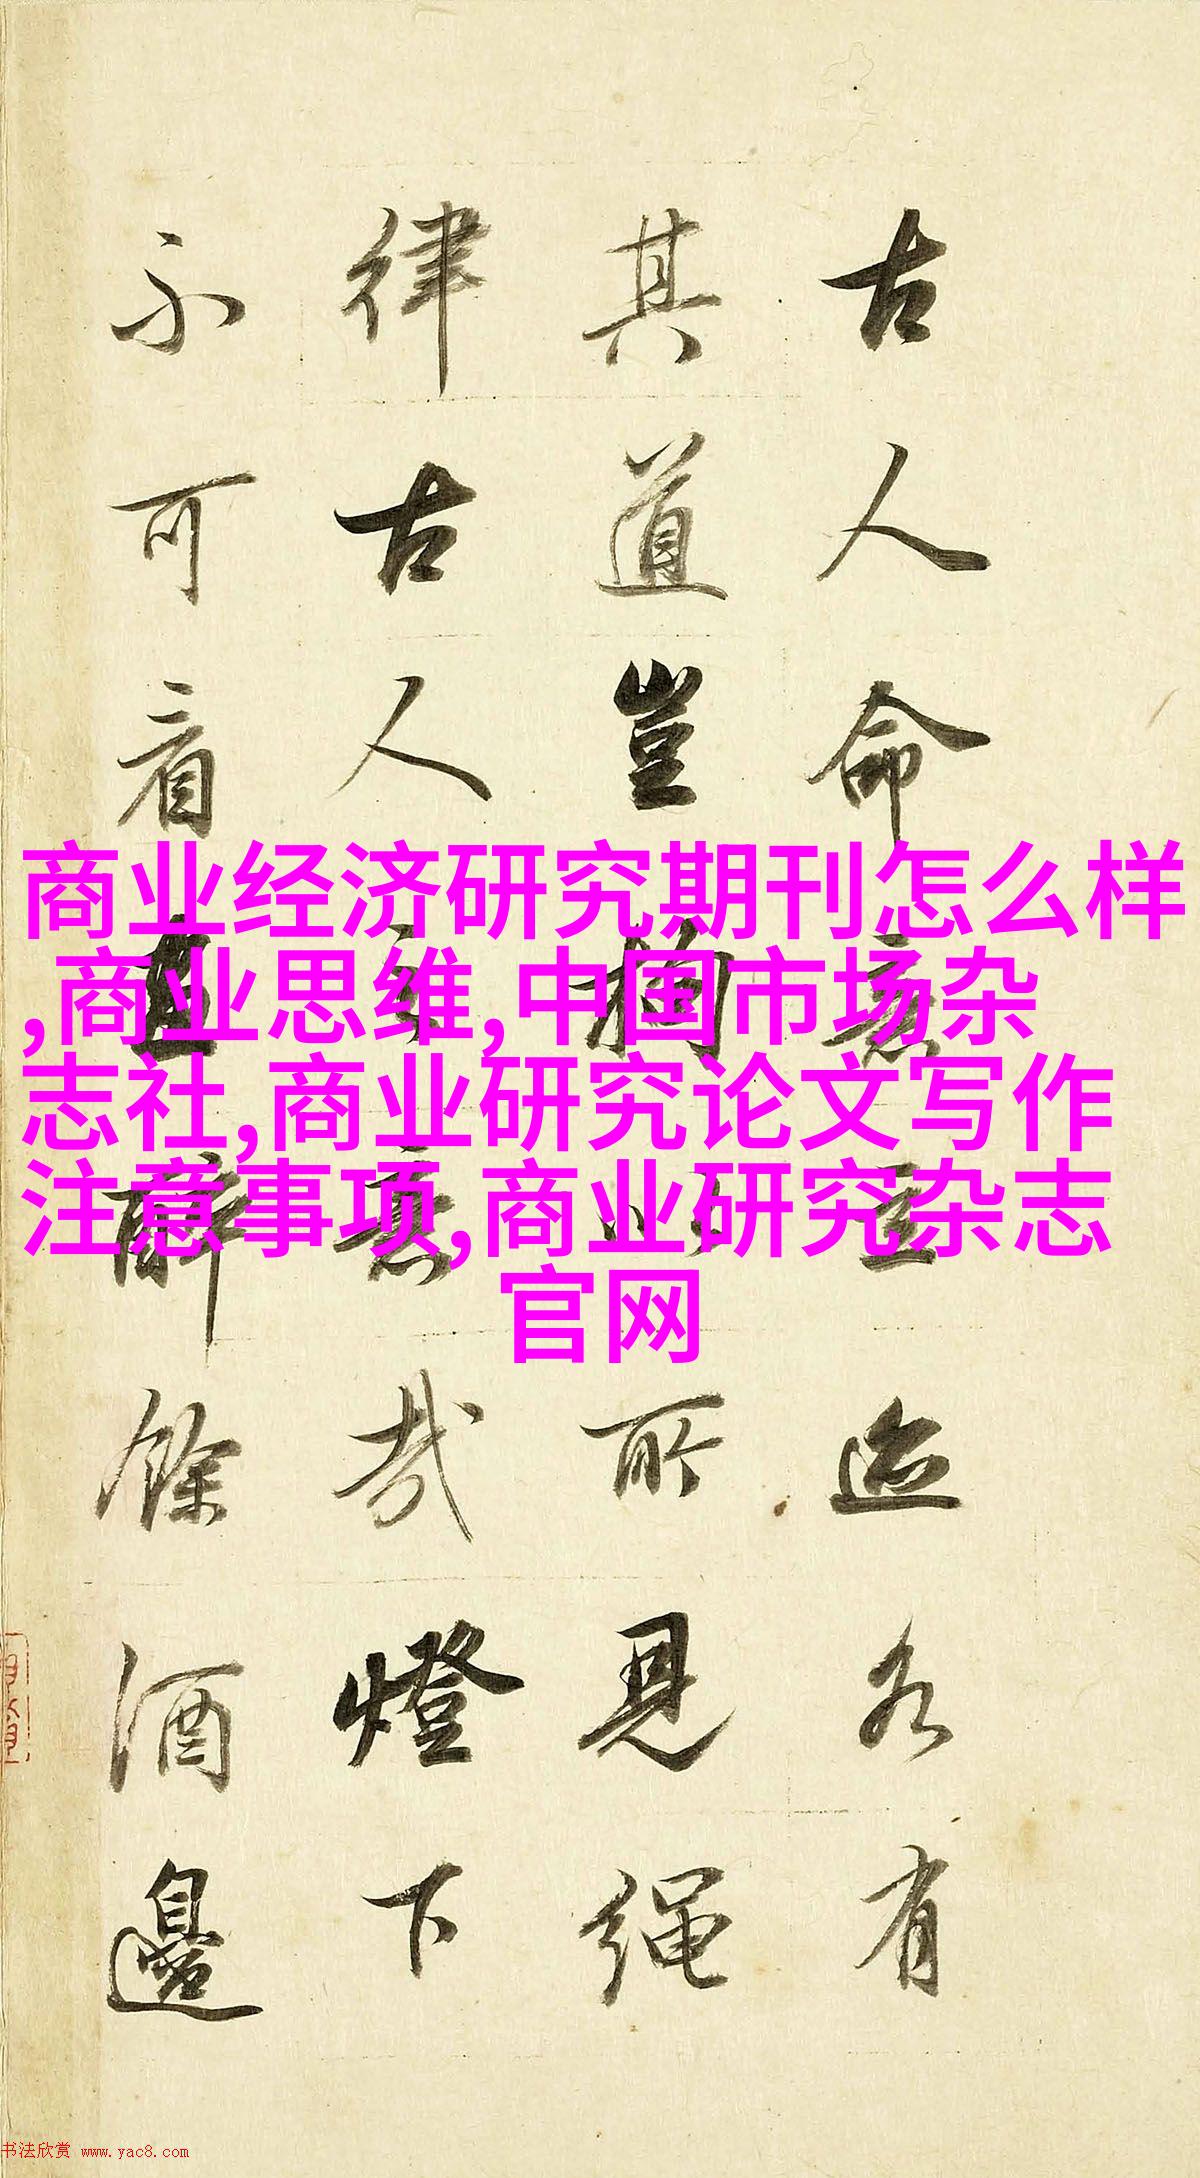 古人命意立迹各有
其道豈拘以所見繩
律古人之意哉燈下
不可看 醉餘酒邊
商业经济研究期刊怎么样
,商业思维,中国市场杂
志社,商业研究论文写作
注意事项,商业研究杂志
官网
书法欣赏 www.yac8.com